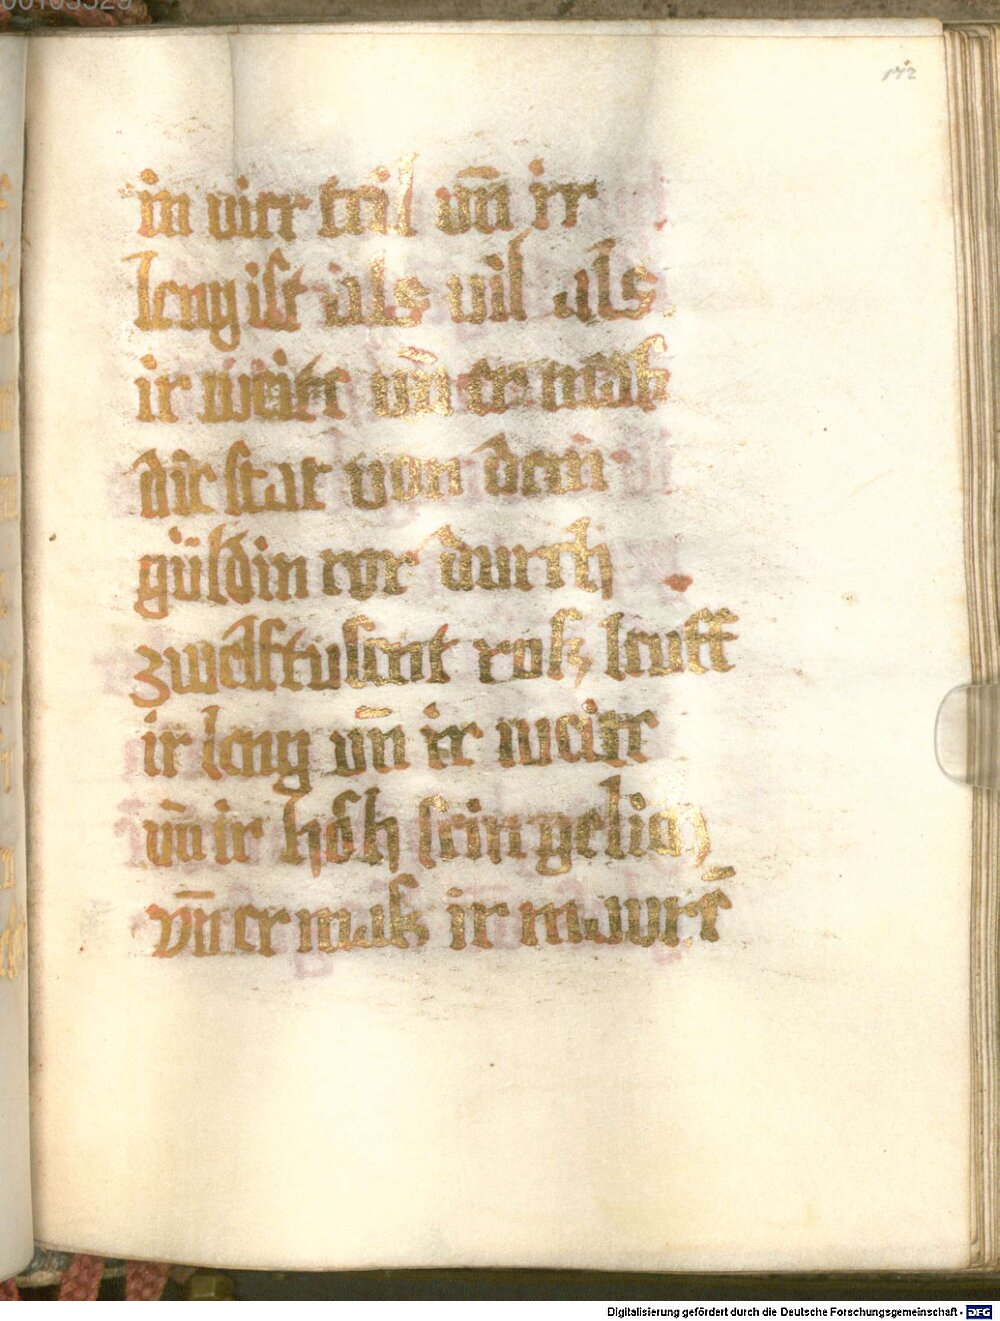 172
in vier teil vn̄ ir
leng ist als vil als
ir weite vn̄ er mas
die stat von dem
güldin ror durch
zwelftusent ros leuff
ir leng vn̄ ir weite
vn̄ ir höh sein gelich
vn̄ er mas ir maurr̄
Digitalisierung gefördert durch die Deutsche Forschungsgemeinschaft - DFG